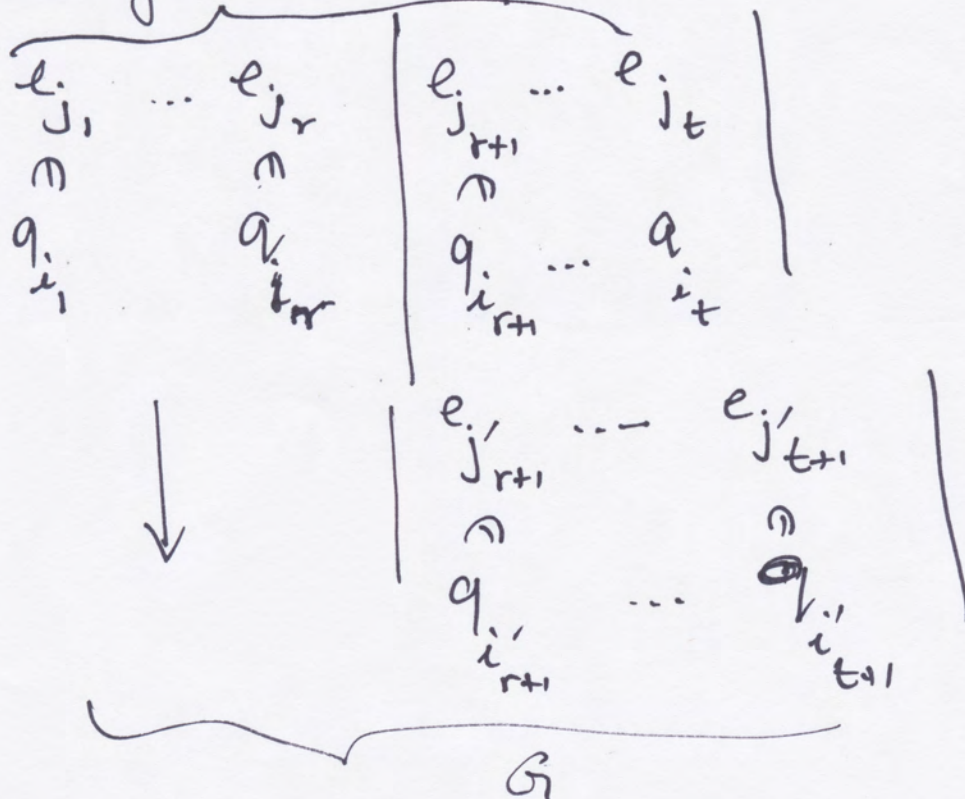 e_{j_1} ... e_{j_r} | e_{j_{r+1}} ... e_{j_t} |
∩ ∩ ∩
q_{i_1} q_{i_r} | q_{i_{r+1}} ... q_{i_t}
↓ | e_{j'_{r+1}} ... e_{j'_{t+1}} |
∩ ∩
q_{i'_{r+1}} ... q_{i'_{t+1}}
G